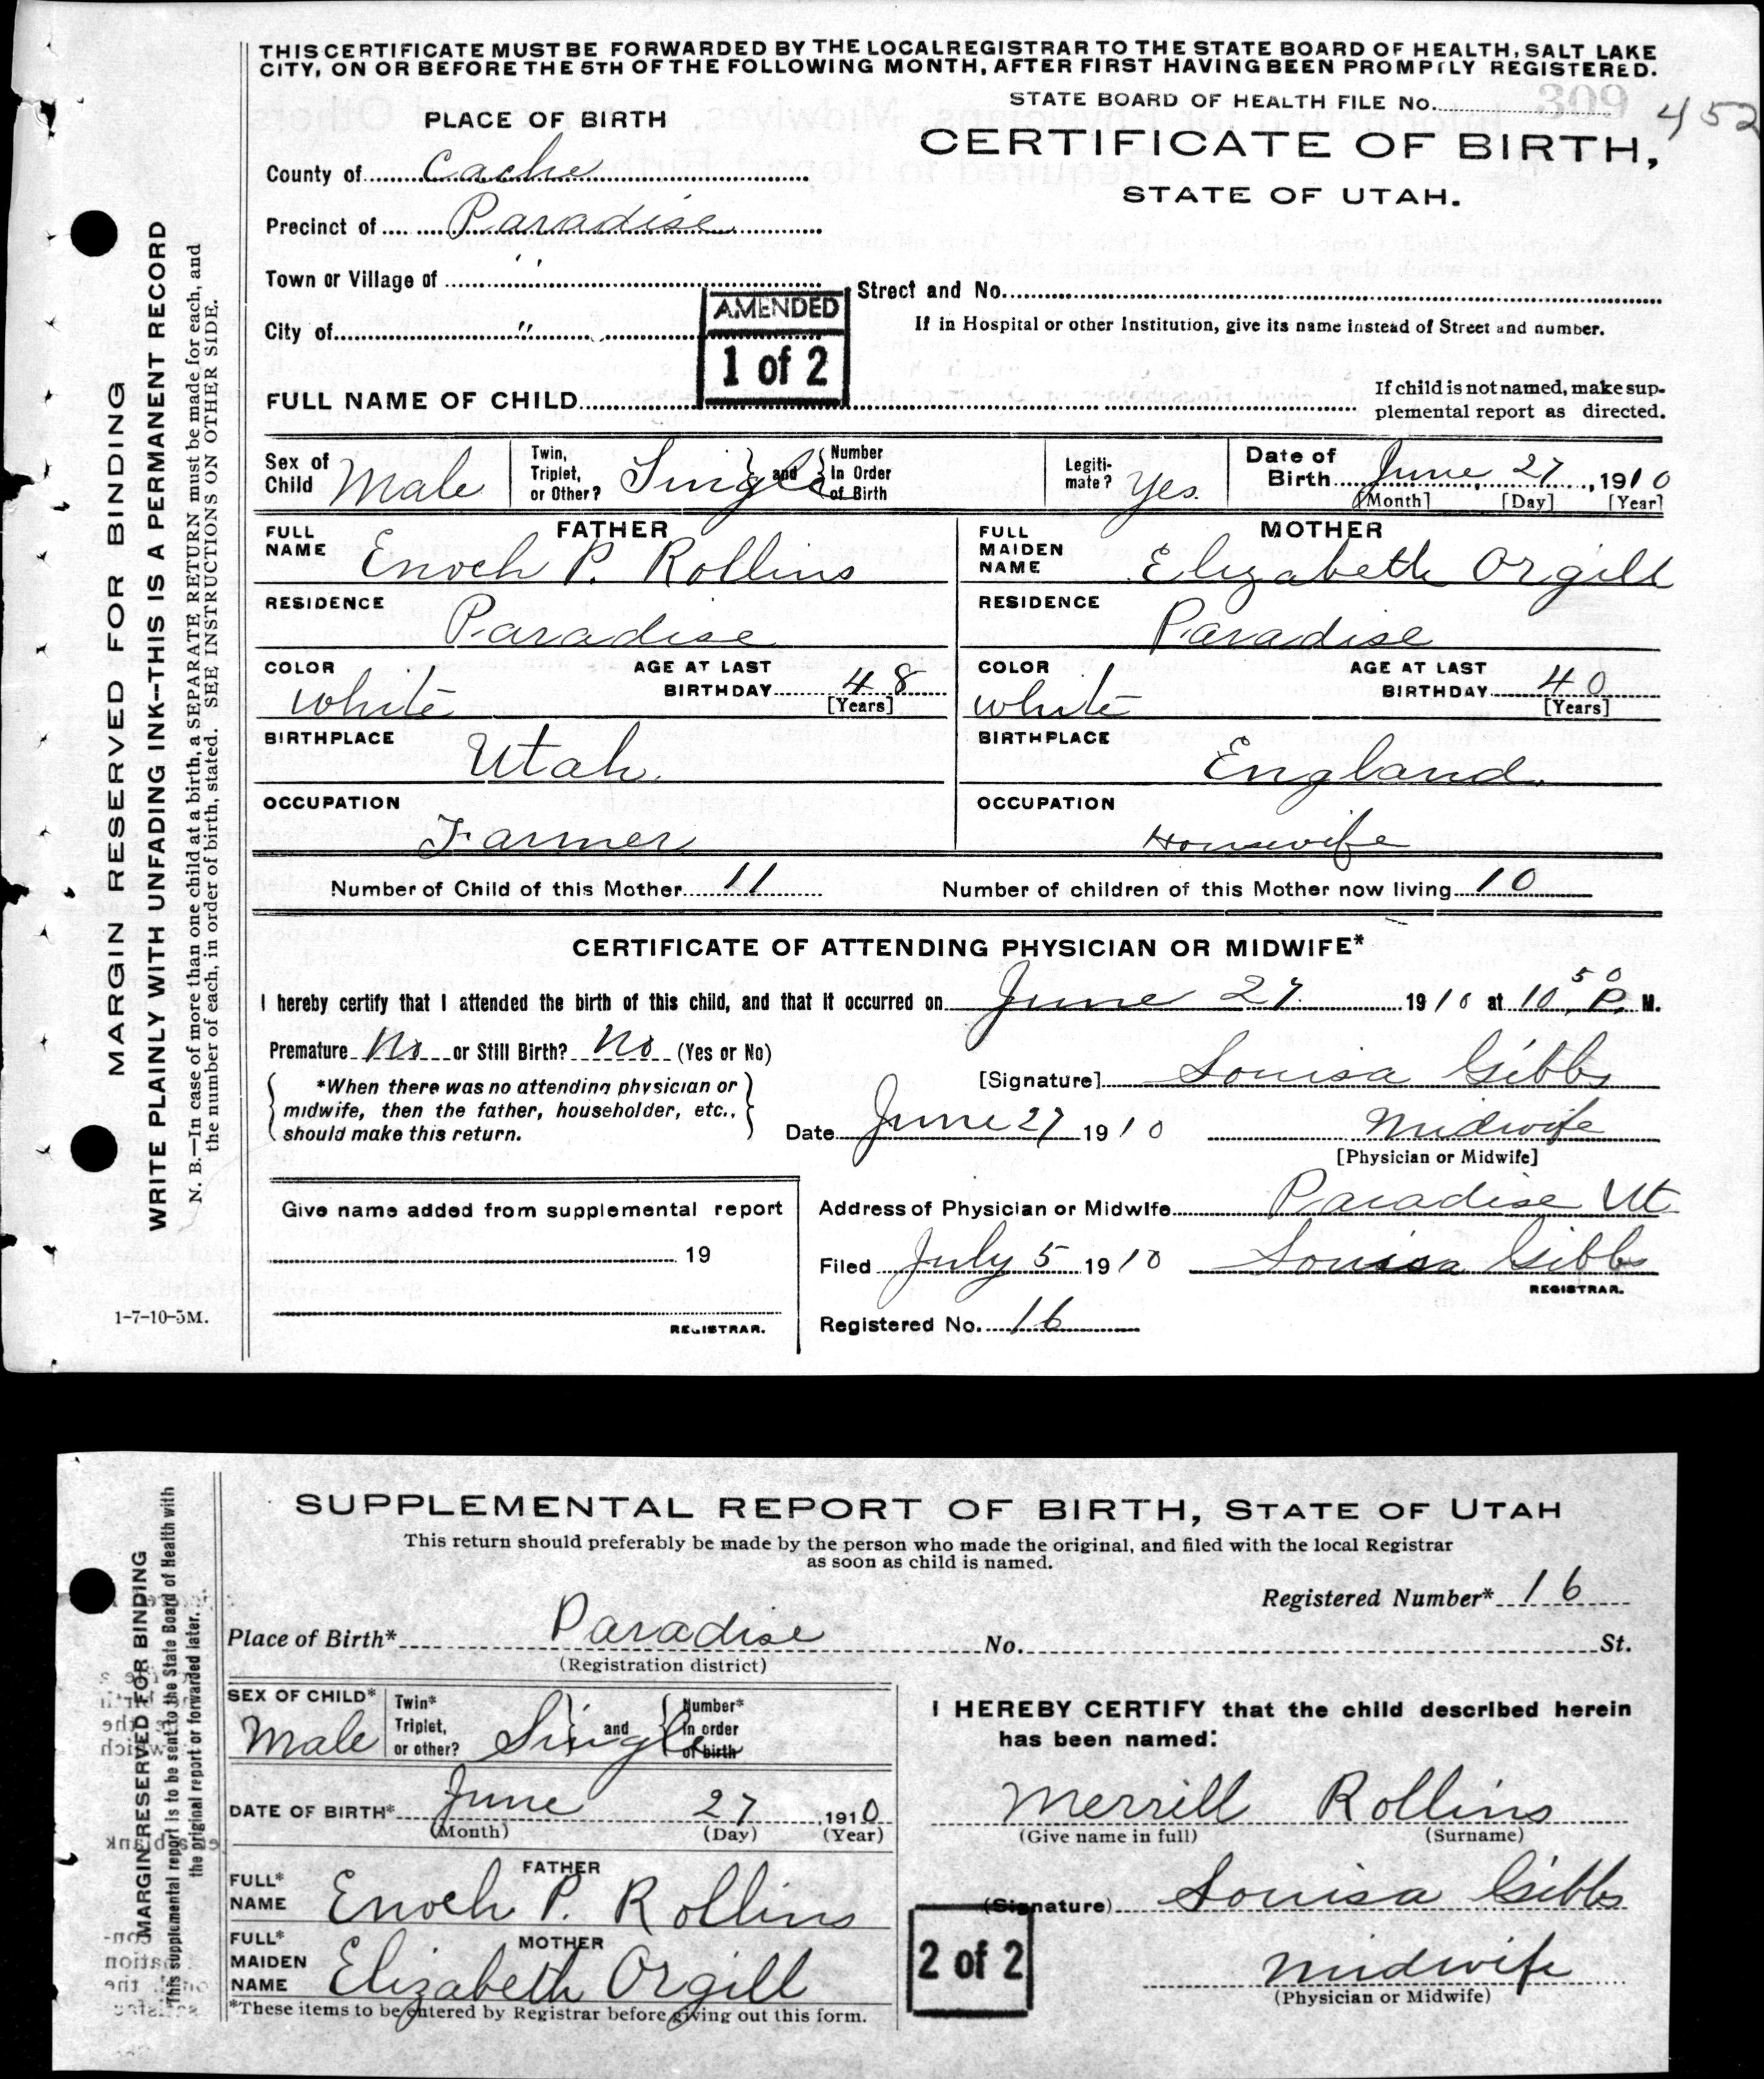 THIS CERTIFICATE MUST BE FORWARDED BY THE LOCAL REGISTRAR TO THE STATE BOARD OF HEALTH, SALT LAKE
CITY, ON OR BEFORE THE 5TH OF THE FOLLOWING MONTH, AFTER FIRST HAVING BEEN PROMPTLY REGISTERED.
STATE BOARD OF HEALTH FILE No. 309 452
PLACE OF BIRTH
CERTIFICATE OF BIRTH,
STATE OF UTAH.
County of Cache
Precinct of Paradise
Town or Village of "
Street and No.
City of "
If in Hospital or other Institution, give its name instead of Street and number.
AMENDED
1 of 2
FULL NAME OF CHILD
If child is not named, make sup-
plemental report as directed.
Sex of Child Male
Twin, Triplet, or Other? Single and Number In Order of Birth
Legiti-mate? Yes.
Date of Birth June 27, 1910
[Month] [Day] [Year]
FATHER
MOTHER
FULL NAME Enoch P. Rollins
FULL MAIDEN NAME Elizabeth Orgill
RESIDENCE Paradise
RESIDENCE Paradise
COLOR white AGE AT LAST BIRTHDAY 48 [Years]
COLOR white AGE AT LAST BIRTHDAY 40 [Years]
BIRTHPLACE Utah.
BIRTHPLACE England.
OCCUPATION Farmer
OCCUPATION Housewife
Number of Child of this Mother 11
Number of children of this Mother now living 10
CERTIFICATE OF ATTENDING PHYSICIAN OR MIDWIFE*
I hereby certify that I attended the birth of this child, and that it occurred on June 27. 1910 at 10 50 P. M.
Premature No or Still Birth? No (Yes or No)
*When there was no attending physician or
midwife, then the father, householder, etc.,
should make this return.
[Signature] Louisa Gibbs
Date June 27 1910 Midwife
[Physician or Midwife]
Give name added from supplemental report
19
REGISTRAR.
Address of Physician or Midwife Paradise Ut.
Filed July 5 1910 Louisa Gibbs
REGISTRAR.
Registered No. 16
MARGIN RESERVED FOR BINDING
WRITE PLAINLY WITH UNFADING INK--THIS IS A PERMANENT RECORD
N. B.—In case of more than one child at a birth, a SEPARATE RETURN must be made for each, and
the number of each, in order of birth, stated. SEE INSTRUCTIONS ON OTHER SIDE.
1-7-10-5M.
SUPPLEMENTAL REPORT OF BIRTH, STATE OF UTAH
This return should preferably be made by the person who made the original, and filed with the local Registrar
as soon as child is named.
Registered Number* 16
Place of Birth* Paradise No. St.
(Registration district)
SEX OF CHILD* Male
Twin* Triplet, or other? Single and Number* In order of birth
DATE OF BIRTH* June 27 1910
(Month) (Day) (Year)
FATHER
FULL* NAME Enoch P. Rollins
MOTHER
FULL* MAIDEN NAME Elizabeth Orgill
*These items to be entered by Registrar before giving out this form.
I HEREBY CERTIFY that the child described herein
has been named:
Merrill Rollins
(Give name in full) (Surname)
(Signature) Louisa Gibbs
2 of 2
Midwife
(Physician or Midwife)
MARGIN RESERVED FOR BINDING
This supplemental report is to be sent to the State Board of Health with
the original report or forwarded later.